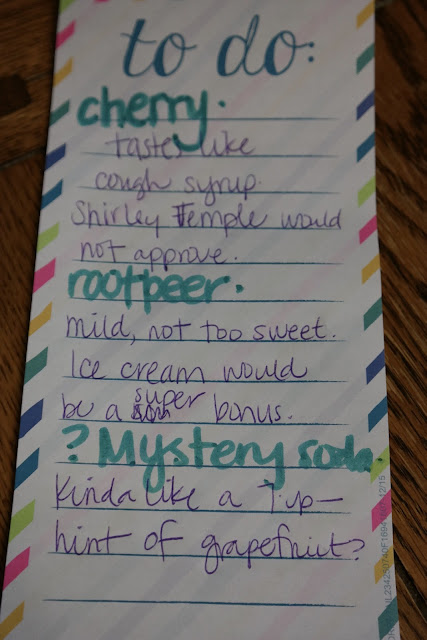 to do:
cherry.
tastes like
cough syrup.
Shirley Temple would
not approve.
rootbeer.
mild, not too sweet.
Ice cream would
be a super bonus.
? Mystery soda.
Kinda like a 7up-
hint of grapefruit?
12/15